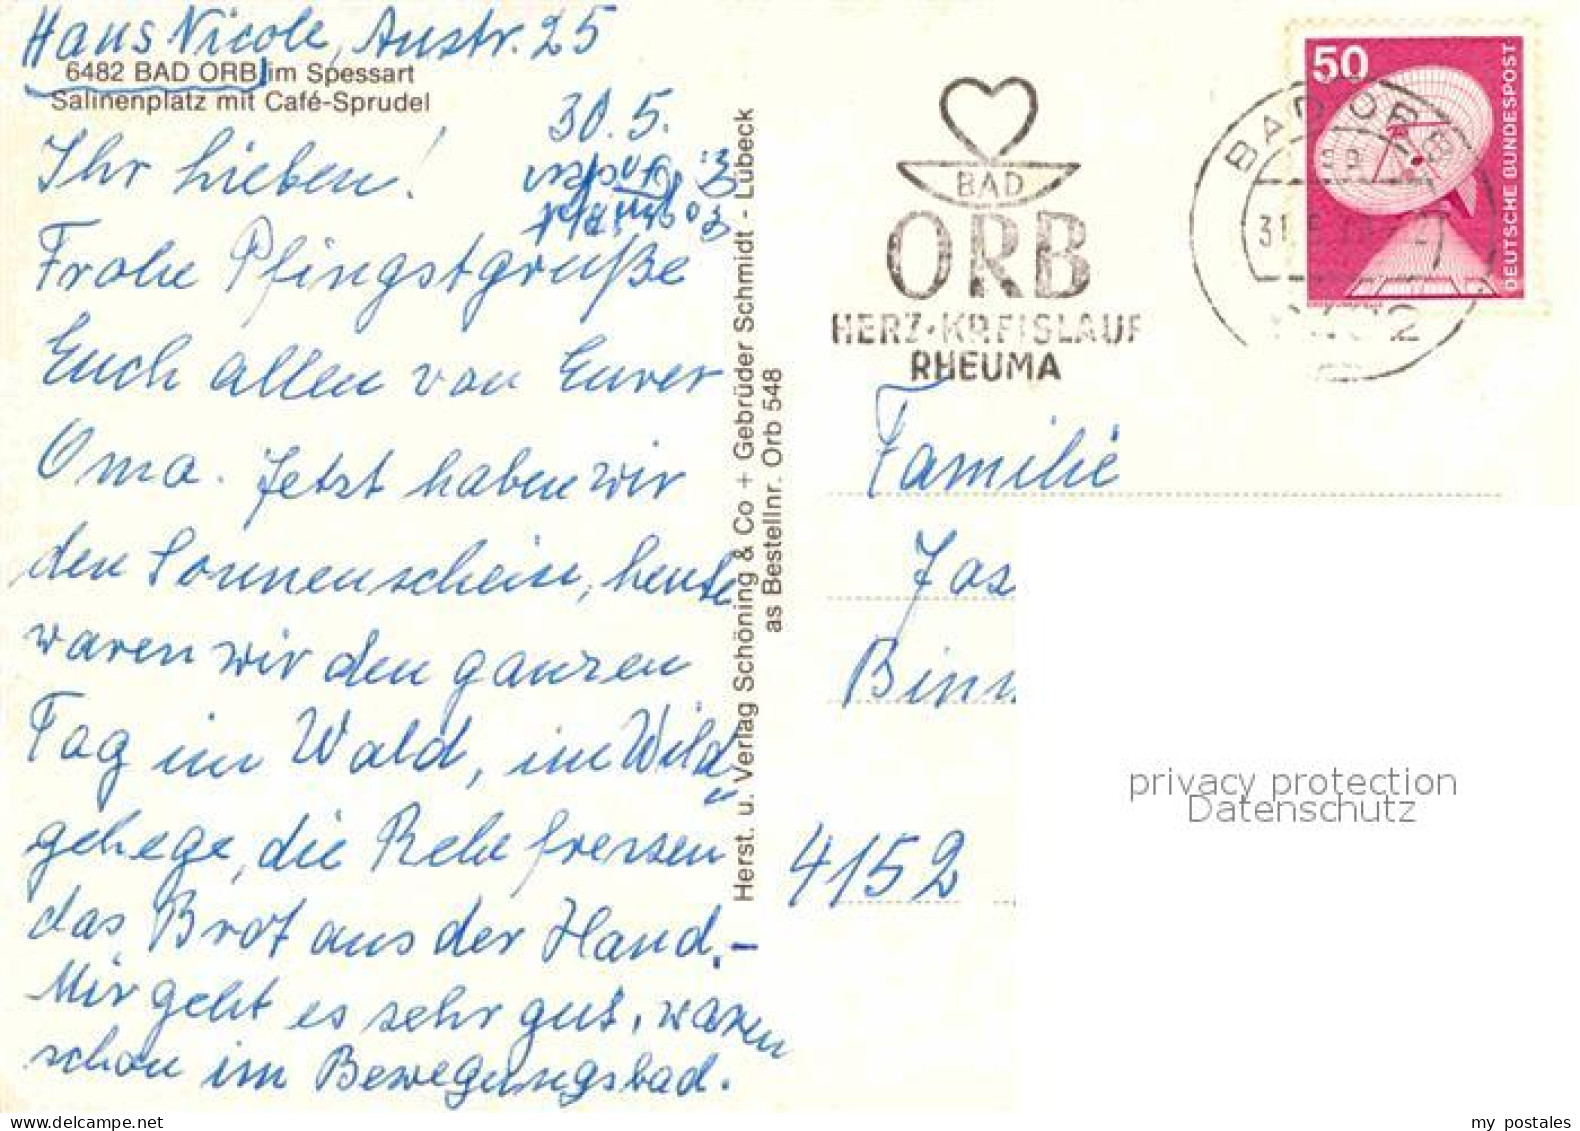 Haus Nicole, Austr. 25
6482 BAD ORB im Spessart
Salinenplatz mit Café-Sprudel
30. 5.
Ihr Lieben!
Frohe Pfingstgrüße
Euch allen von Eurer
Oma. Jetzt haben wir
den Sonnenschein, heute
waren wir den ganzen
Tag im Wald, im Wild=
gehege, die Rehe fressen
das Brot aus der Hand. –
Mir geht es sehr gut, waren
schon im Bewegungsbad.
Herst. u. Verlag Schöning & Co + Gebrüder Schmidt - Lübeck
as Bestellnr. Orb 548
BAD
ORB
HERZ-KREISLAUF
RHEUMA
BAD ORB
50
DEUTSCHE BUNDESPOST
Familie
Jos
Binn
4152
privacy protection
Datenschutz
my postales